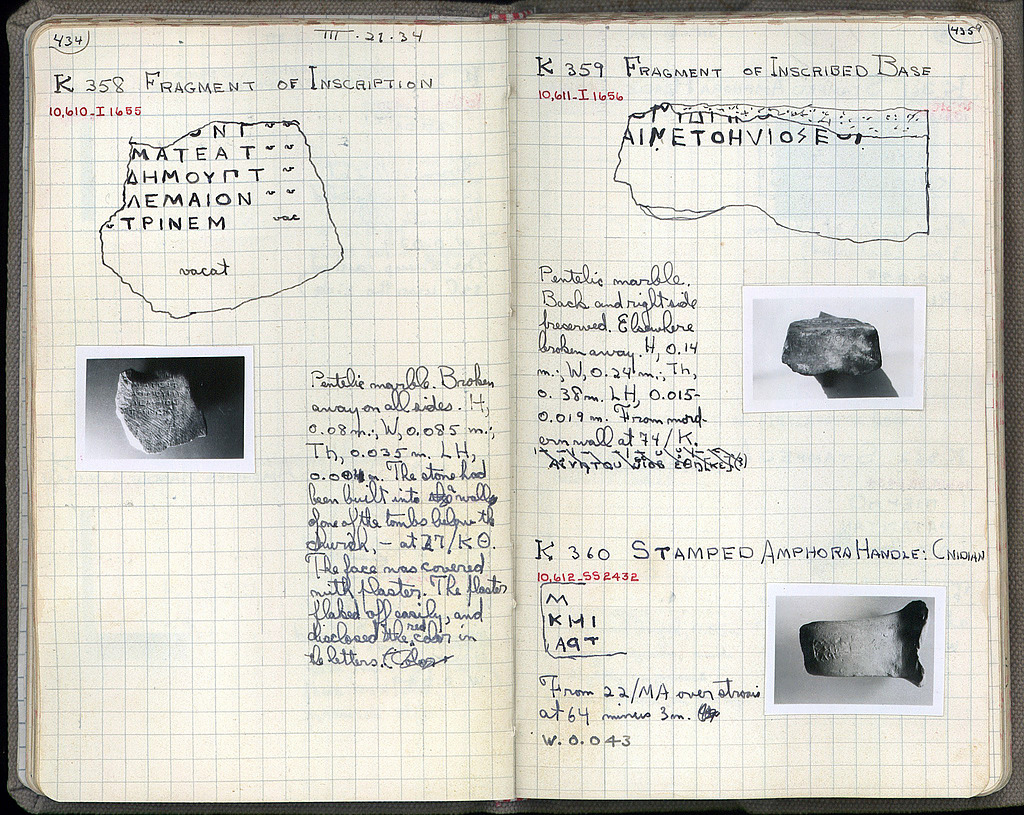 434
III · 21 · 34
K 358 FRAGMENT OF INSCRIPTION
10,610-I 1655
ΟΝΙ
ΜΑΤΕΑΤ
ΔΗΜΟΥΠΤ
ΛΕΜΑΙΟΝ
ΤΡΙΝΕΜ vac
vacat
Pentelic marble. Broken
away on all sides. H,
0.08 m.; W, 0.085 m.;
Th, 0.035 m. LH,
The stone had
been built into a wall
of one of the tombs below the
church, — at 27/ΚΘ.
The face was covered
with plaster. The plaster
flaked off easily, and
disclosed the red color in
the letters.
435
K 359 FRAGMENT OF INSCRIBED BASE
10,611-I 1656
ΑΙΜΕΤΟΗΥΙΟΣΕ
Pentelic marble.
Back and right side
preserved. Elsewhere
broken away. H, 0.14
m.; W, 0.24 m.; Th,
0.38 m. LH, 0.015-
0.019 m. From mod-
ern wall at 74/K.
K 360 STAMPED AMPHORA HANDLE: CNIDIAN
10,612-SS2432
M
KHI
From 22/MA over strosis
at 64 minus 3 m.
W. 0.043